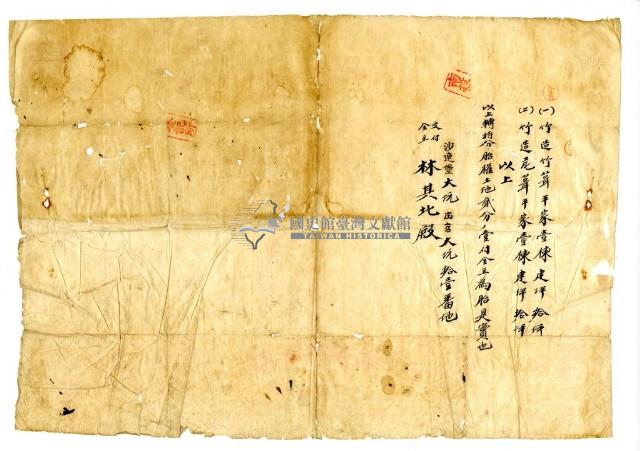 (一)竹造竹葺平家壹棟建坪拾坪
(二)竹造瓦葺平家壹棟建坪拾坪
以上
以上轉將分胎權土地貳分ノ壹付金主為胎是實也
沙連堡大坑庄字大坑拾壹番地
交付
金主 林其北殿
國史館臺灣文獻館
TAIWAN HISTORICA